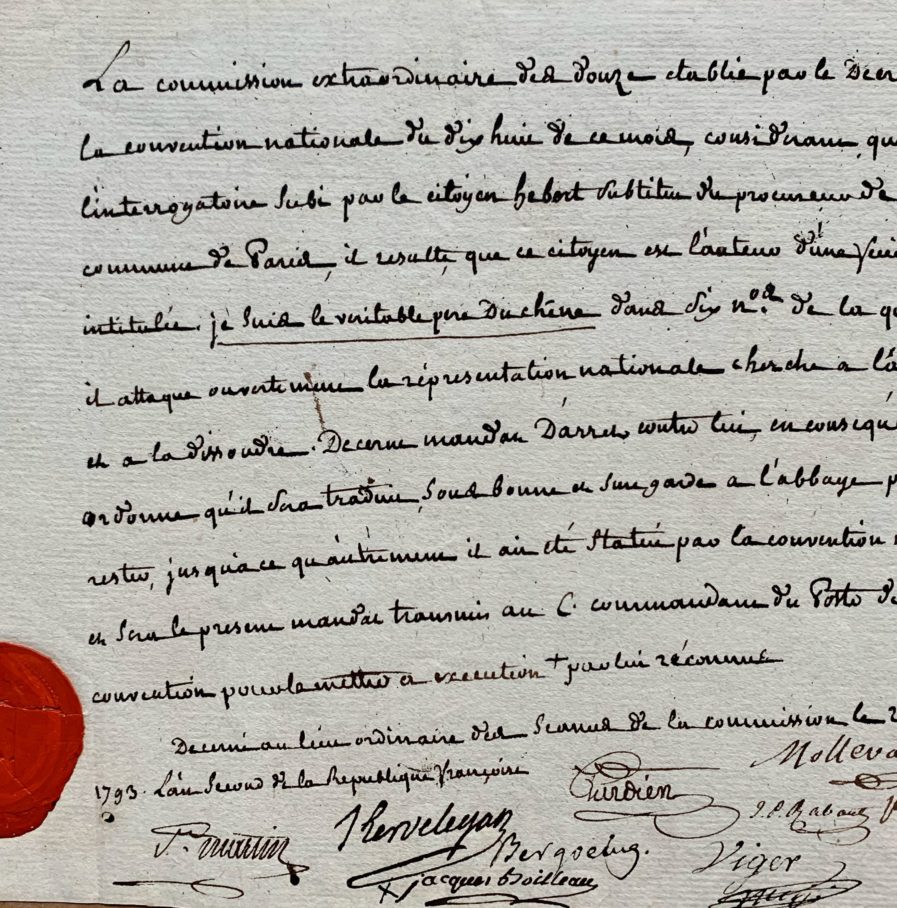 La commission extraordinaire des douze etablie par le Decr
la convention nationale du dix huit de ce mois, considerant qu
l'interrogatoire subi par le citoyen hebert substitut du procureur de
commune de Paris, il resulte, que ce citoyen est l'auteur d'une feui
intitulée. je suis le veritable pere Duchêne dans six n.os de la qu
il attaque ouvertement la réprésentation nationale cherche a l'a
et a la dissoudre. Decerne mandat D'arret, contre lui, en conséqu
ordonne qu'il sera traduit sous bonne et sure garde a l'abbaye p
rester, jusqu'a ce qu'autrement il ait été statué par la convention
et sera le present mandat transmis au C. commandant du Poste de
convention pour le mettre a execution + par lui réconnue
Decerné au lieu ordinaire des seances de la commission le 2
1793. L'an second de la Republique françoise
Molleva
J. P. Rabaut
St. martin
Kervelegan
Bergoeing.
Viger
jacques Boilleau